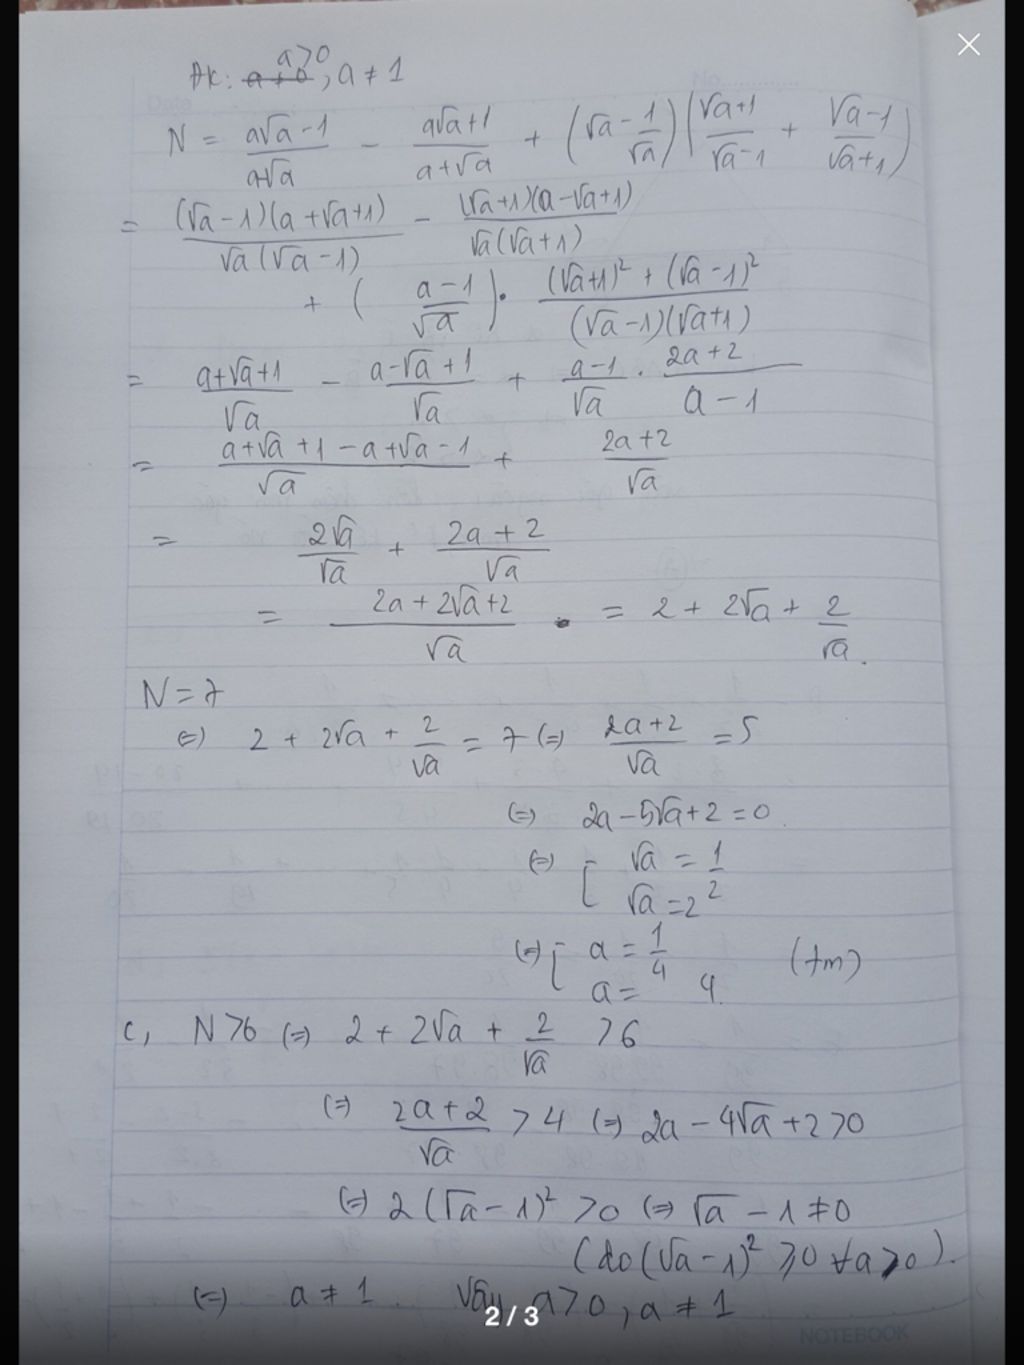 ĐK: a>0, a ≠ 1
N = (a√a - 1)/(a-√a) - (a√a+1)/(a+√a) + (√a - 1/√a)((√a+1)/(√a-1) + (√a-1)/(√a+1))
= (√a-1)(a+√a+1)/√a(√a-1) - (√a+1)(a-√a+1)/√a(√a+1)
+ ((a-1)/√a) . ((√a+1)² + (√a-1)²)/(√a-1)(√a+1)
= (a+√a+1)/√a - (a-√a+1)/√a + (a-1)/√a . (2a+2)/(a-1)
= (a+√a+1-a+√a-1)/√a + (2a+2)/√a
= 2√a/√a + (2a+2)/√a
= (2a+2√a+2)/√a = 2 + 2√a + 2/√a.
N = 7
(=) 2 + 2√a + 2/√a = 7 (=) (2a+2)/√a = 5
(=) 2a-5√a+2=0.
(=) [ √a = 1/2
√a = 2
(=) [ a = 1/4 (tm)
a = 4.
c, N>6 (=) 2 + 2√a + 2/√a >6
(=) (2a+2)/√a > 4 (=) 2a-4√a+2>0
(=) 2(√a-1)² >0 (=) √a - 1 ≠ 0
(do (√a-1)² ⩾0 ∀a>0).
(=) a ≠ 1. Vậy a>0, a ≠ 1
2 / 3
NOTEBOOK